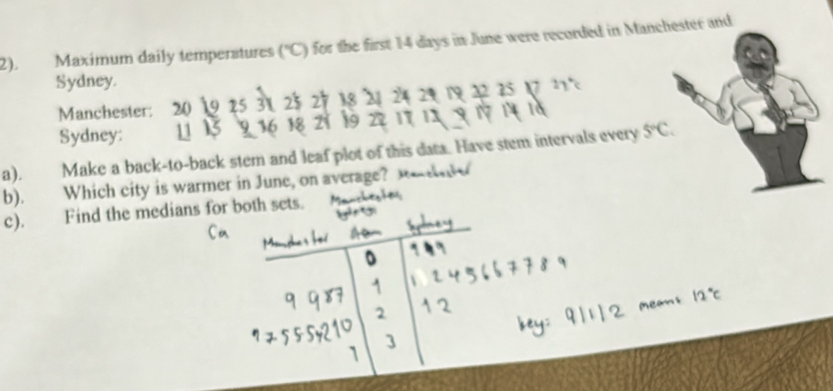 2). Maximum daily temperatures (°C) for the first 14 days in June were recorded in Manchester and
Sydney.
Manchester: 20 19 25 31 25 27 18 21 24 29 19 22 25 17
Sydney: 11 15 9 16 18 21 19 22 17 12 9 17 14 16
a). Make a back-to-back stem and leaf plot of this data. Have stem intervals every 5°C.
b). Which city is warmer in June, on average? Manchester
c). Find the medians for both sets.
Manchester Sydney
0
9 9 8 7 1 1 2 4 5 6 6 7 7 8 9
9 7 5 5 5 4 2 1 0 2 1 2
1 3
key: 9|1|2 means 12°C